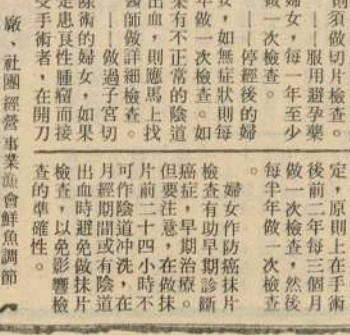 則須做切片檢查。
——服用避孕藥
婦女,每一年至少
做一次檢查。
——停經後的婦
女,如無症狀則每
年做一次檢查。如
果有不正常的陰道
出血,則應馬上找
醫師做詳細檢查。
——做過子宮切
除術的婦女,如果
是患良性腫瘤而接
受手術者,在開刀
定,原則上在手術
後前二年每三個月
做一次檢查,然後
每半年做一次檢查
婦女作防癌抹片
檢查有助早期診斷
癌症,早期治療。
但要注意,在做抹
片前二十四小時不
可作陰道冲洗,在
月經期間或有陰道
出血時避免做抹片
檢查,以免影響檢
查的準確性。
廠、社團經營事業漁會鮮魚調節